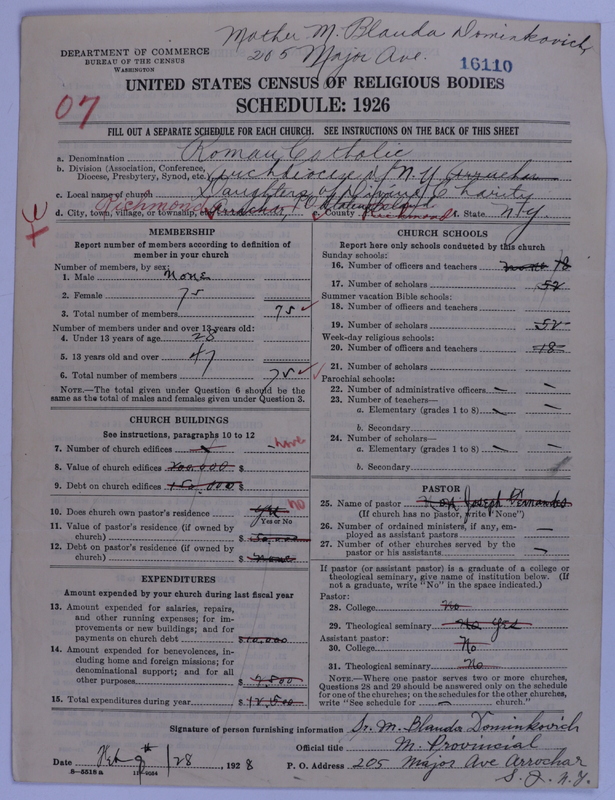 Mother M. Blanda Dominkovich
205 Major Ave.
DEPARTMENT OF COMMERCE
BUREAU OF THE CENSUS
WASHINGTON
16110
UNITED STATES CENSUS OF RELIGIOUS BODIES
SCHEDULE: 1926
07
FILL OUT A SEPARATE SCHEDULE FOR EACH CHURCH. SEE INSTRUCTIONS ON THE BACK OF THIS SHEET
a. Denomination Roman Catholic
b. Division (Association, Conference, Diocese, Presbytery, Synod, etc.) Archdiocese of N.Y. Arrochar
c. Local name of church Daughters of Divine Charity
d. City, town, village, or township, Richmond Arrochar e. County Richmond f. State N.Y.
MEMBERSHIP
Report number of members according to definition of member in your church
Number of members, by sex:
1. Male none
2. Female 75
3. Total number of members 75
Number of members under and over 13 years old:
4. Under 13 years of age 28
5. 13 years old and over 47
6. Total number of members 75
NOTE.—The total given under Question 6 should be the same as the total of males and females given under Question 3.
CHURCH BUILDINGS
See instructions, paragraphs 10 to 12
7. Number of church edifices 1 none
8. Value of church edifices 200,000 $
9. Debt on church edifices 150,000 $
10. Does church own pastor's residence yes no
Yes or No
11. Value of pastor's residence (if owned by church) $
12. Debt on pastor's residence (if owned by church) $ none
EXPENDITURES
Amount expended by your church during last fiscal year
13. Amount expended for salaries, repairs, and other running expenses; for improvements or new buildings; and for payments on church debt $10,000
14. Amount expended for benevolences, including home and foreign missions; for denominational support; and for all other purposes $ 2,500
15. Total expenditures during year $12,500
CHURCH SCHOOLS
Report here only schools conducted by this church
Sunday schools:
16. Number of officers and teachers none 18
17. Number of scholars 52
Summer vacation Bible schools:
18. Number of officers and teachers
19. Number of scholars 52
Week-day religious schools:
20. Number of officers and teachers 18
21. Number of scholars
Parochial schools:
22. Number of administrative officers —
23. Number of teachers—
a. Elementary (grades 1 to 8) —
b. Secondary
24. Number of scholars—
a. Elementary (grades 1 to 8) —
b. Secondary
PASTOR
25. Name of pastor Joseph Fernandes
(If church has no pastor, write "None")
26. Number of ordained ministers, if any, employed as assistant pastors —
27. Number of other churches served by the pastor or his assistants —
If pastor (or assistant pastor) is a graduate of a college or theological seminary, give name of institution below. (If not a graduate, write "No" in the space indicated.)
Pastor:
28. College No
29. Theological seminary No Yes
Assistant pastor:
30. College No
31. Theological seminary No
NOTE.—Where one pastor serves two or more churches, Questions 28 and 29 should be answered only on the schedule for one of the churches; on the schedules for the other churches, write "See schedule for — church."
Signature of person furnishing information Sr. M. Blanda Dominkovich
Official title M. Provincial
Date Feb 9th /28, 1928 P. O. Address 205 Major Ave Arrochar
S. I. N.Y.
8—5518a
11—9034